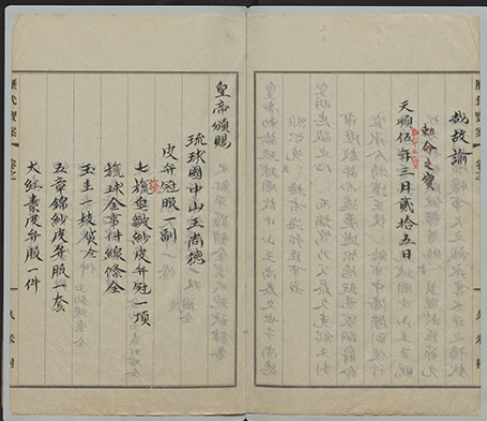 哉故諭
勅命之寶
天順伍年三月貳拾五日
皇帝頒賜
琉球國中山王尚德
皮弁冠服一副
七旒皂皺紗皮弁冠一頂
旒珠金事件線絛全
玉圭一枝袋全
五章錦紗皮弁服一套
大紅素皮弁服一件
歴代寶案
久米村